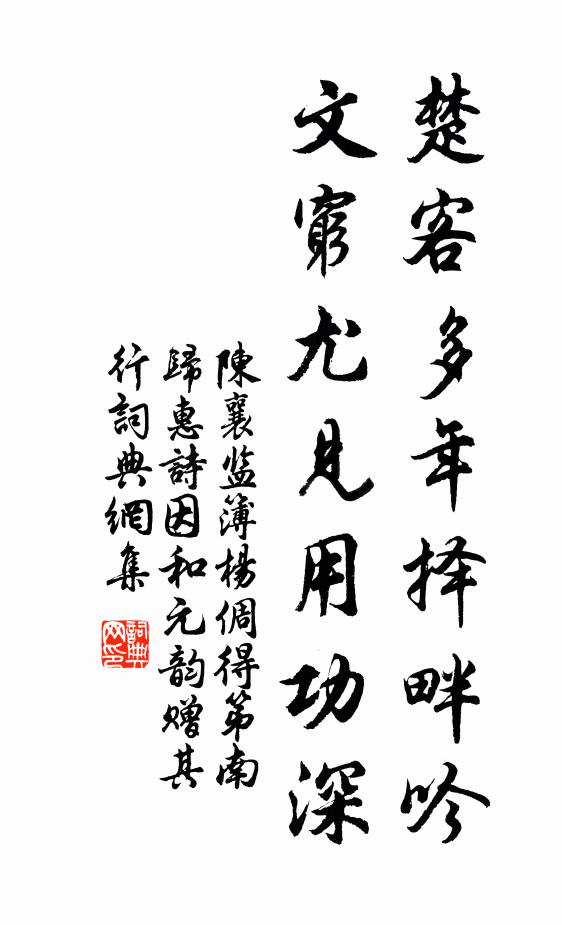 楚客多年择畔吟
文窮尤見用功深
陳襄监簿楊倜得第南
歸惠詩因和元韵贈其
行詞典網集
詞典
网印